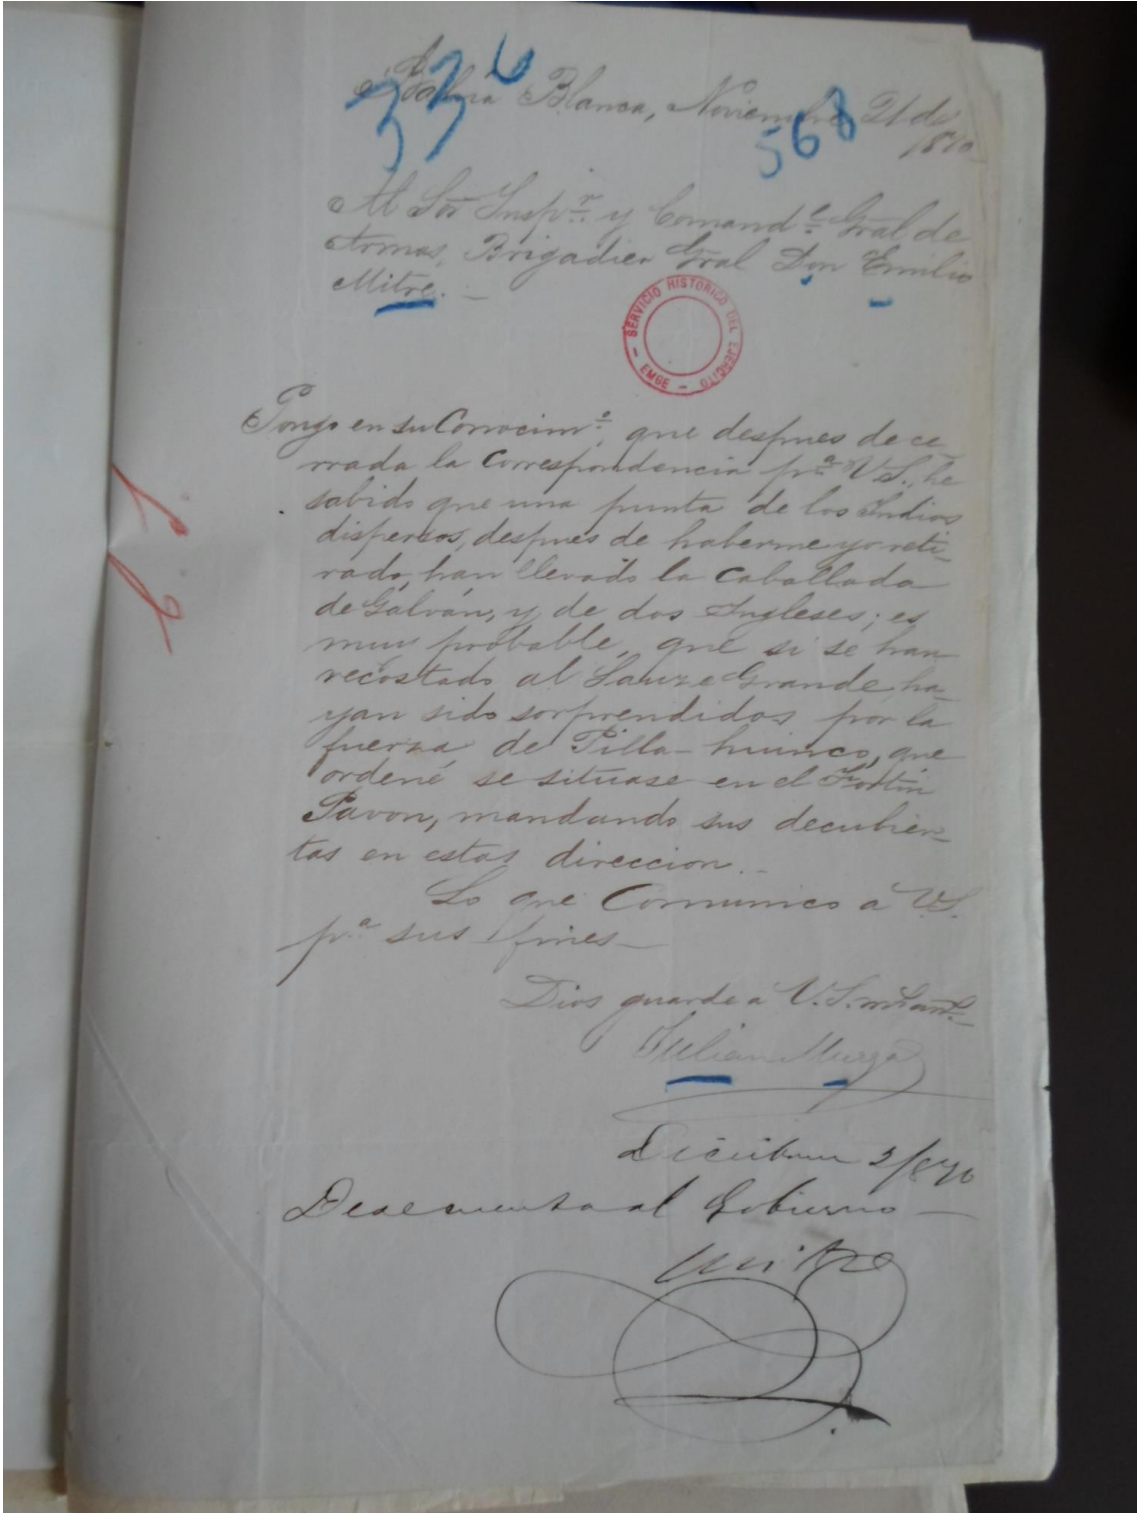 336
Bahia Blanca, Noviembre 21 de
1870
568
Al Sor Inspr. y Comande. Gral de
Armas, Brigadier Gral Don Emilio
Mitre. —
SERVICIO HISTORICO DEL EJERCITO — EMGE —
Pongo en su Conocimo., que despues de ce-
rrada la Correspondencia pa. V.S., he
sabido que una punta de los Indios
dispersos, despues de haberme yo reti-
rado, han llevado la Caballada
de Galván, y de dos Ingleses; es
muy probable, que si se han
recostado al Sauze Grande, ha-
yan sido sorprendidos por la
fuerza de Pilla-huinco, que
ordené se situase en el Fortin
Pavon, mandando sus decubier-
tas en estas direccion. —
Lo que Comunico á V.S.
pa. sus fines —
Dios guarde á V.S.
Julian Murga
Diciembre 2/870
Dese cuenta al Gobierno —
Mitre